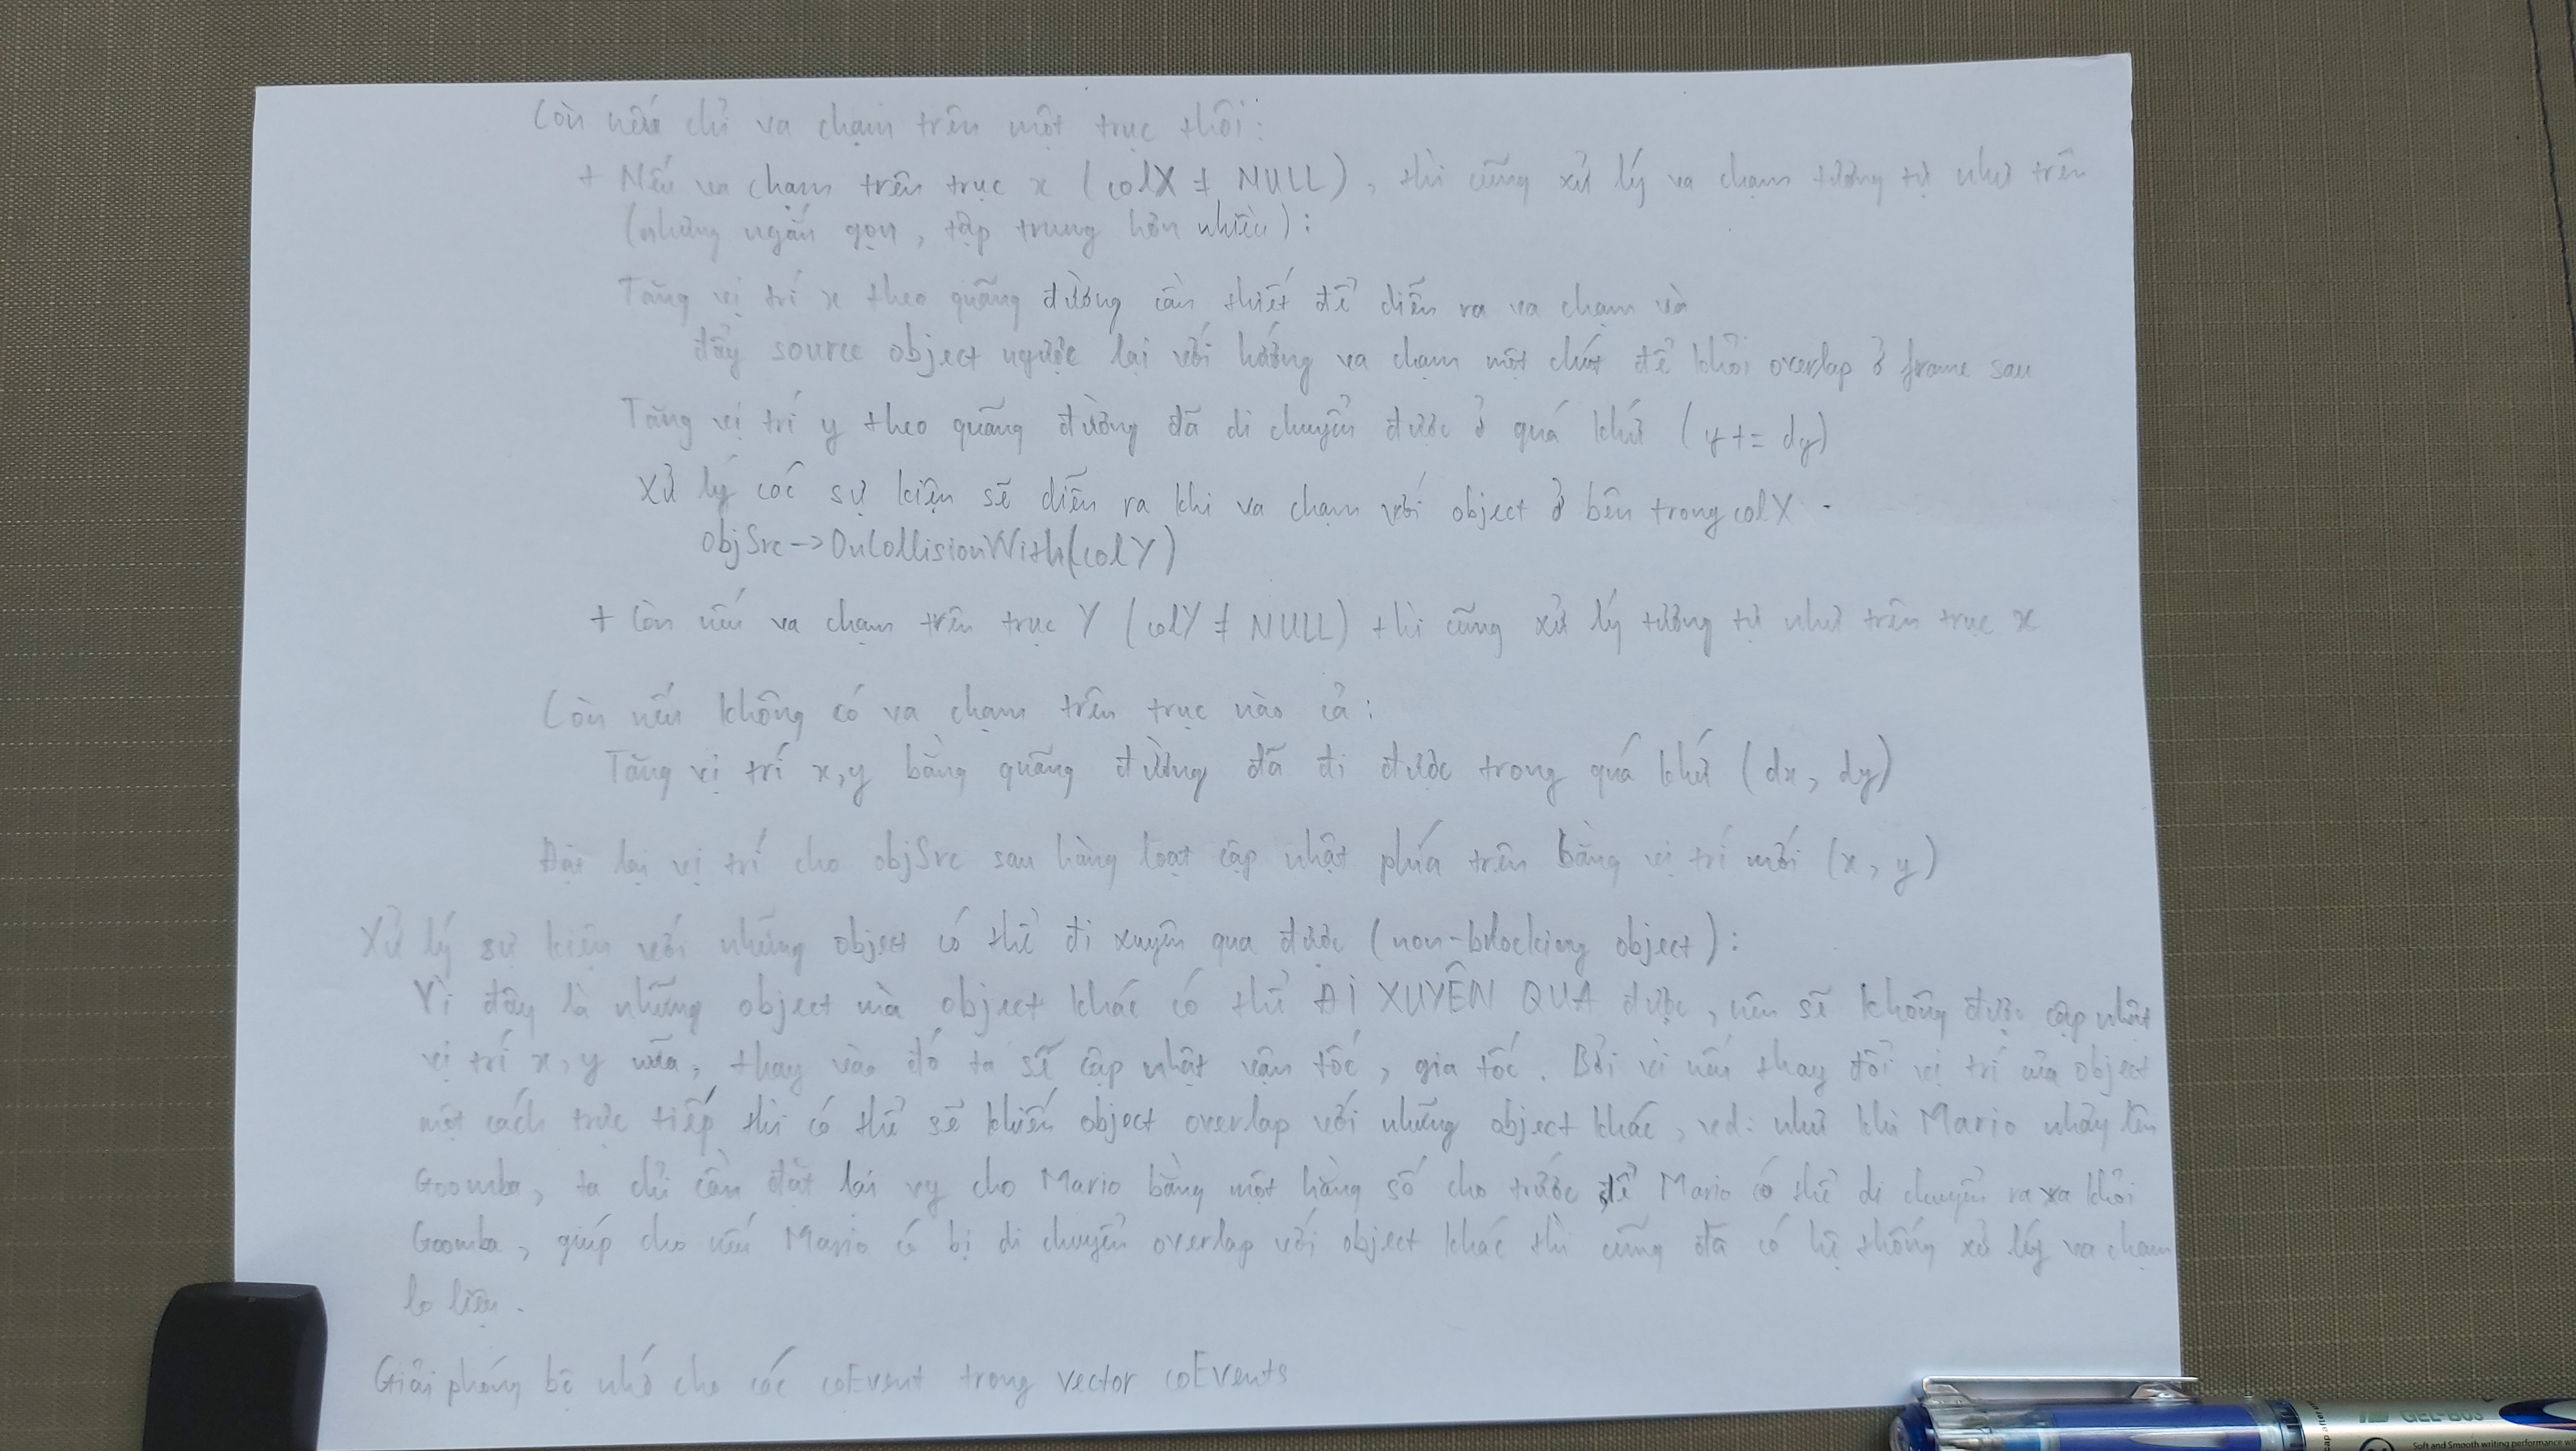 Còn nếu chỉ va chạm trên một trục thôi:
+ Nếu va chạm trên trục x (colX ≠ NULL), thì cũng xử lý va chạm tương tự như trên
(nhưng ngắn gọn, tập trung hơn nhiều):
Tăng vị trí x theo quãng đường cần thiết để diễn ra va chạm và
đẩy source object ngược lại với hướng va chạm một chút để khỏi overlap ở frame sau
Tăng vị trí y theo quãng đường đã di chuyển được ở quá khứ (y += dy)
Xử lý các sự kiện sẽ diễn ra khi va chạm với object ở bên trong colX.
objSrc->OnCollisionWith(colY)
+ Còn nếu va chạm trên trục Y (colY ≠ NULL) thì cũng xử lý tương tự như trên trục x
Còn nếu không có va chạm trên trục nào cả:
Tăng vị trí x,y bằng quãng đường đã đi được trong quá khứ (dx, dy)
Đặt lại vị trí cho objSrc sau hàng loạt cập nhật phía trên bằng vị trí mới (x, y)
Xử lý sự kiện với những object có thể đi xuyên qua được (non-blocking object):
Vì đây là những object mà object khác có thể ĐI XUYÊN QUA được, nên sẽ không được cập nhật
vị trí x, y nữa, thay vào đó ta sẽ cập nhật vận tốc, gia tốc. Bởi vì nếu thay đổi vị trí của object
một cách trực tiếp thì có thể sẽ khiến object overlap với những object khác, vd: như khi Mario nhảy lên
Goomba, ta chỉ cần đặt lại vy cho Mario bằng một hằng số cho trước để Mario có thể di chuyển ra xa khỏi
Goomba, giúp cho nếu Mario có bị di chuyển overlap với object khác thì cũng đã có hệ thống xử lý va chạm
lo liệu.
Giải phóng bộ nhớ cho các coEvent trong vector coEvents
GEL-BOS
Soft and Smooth writing performance